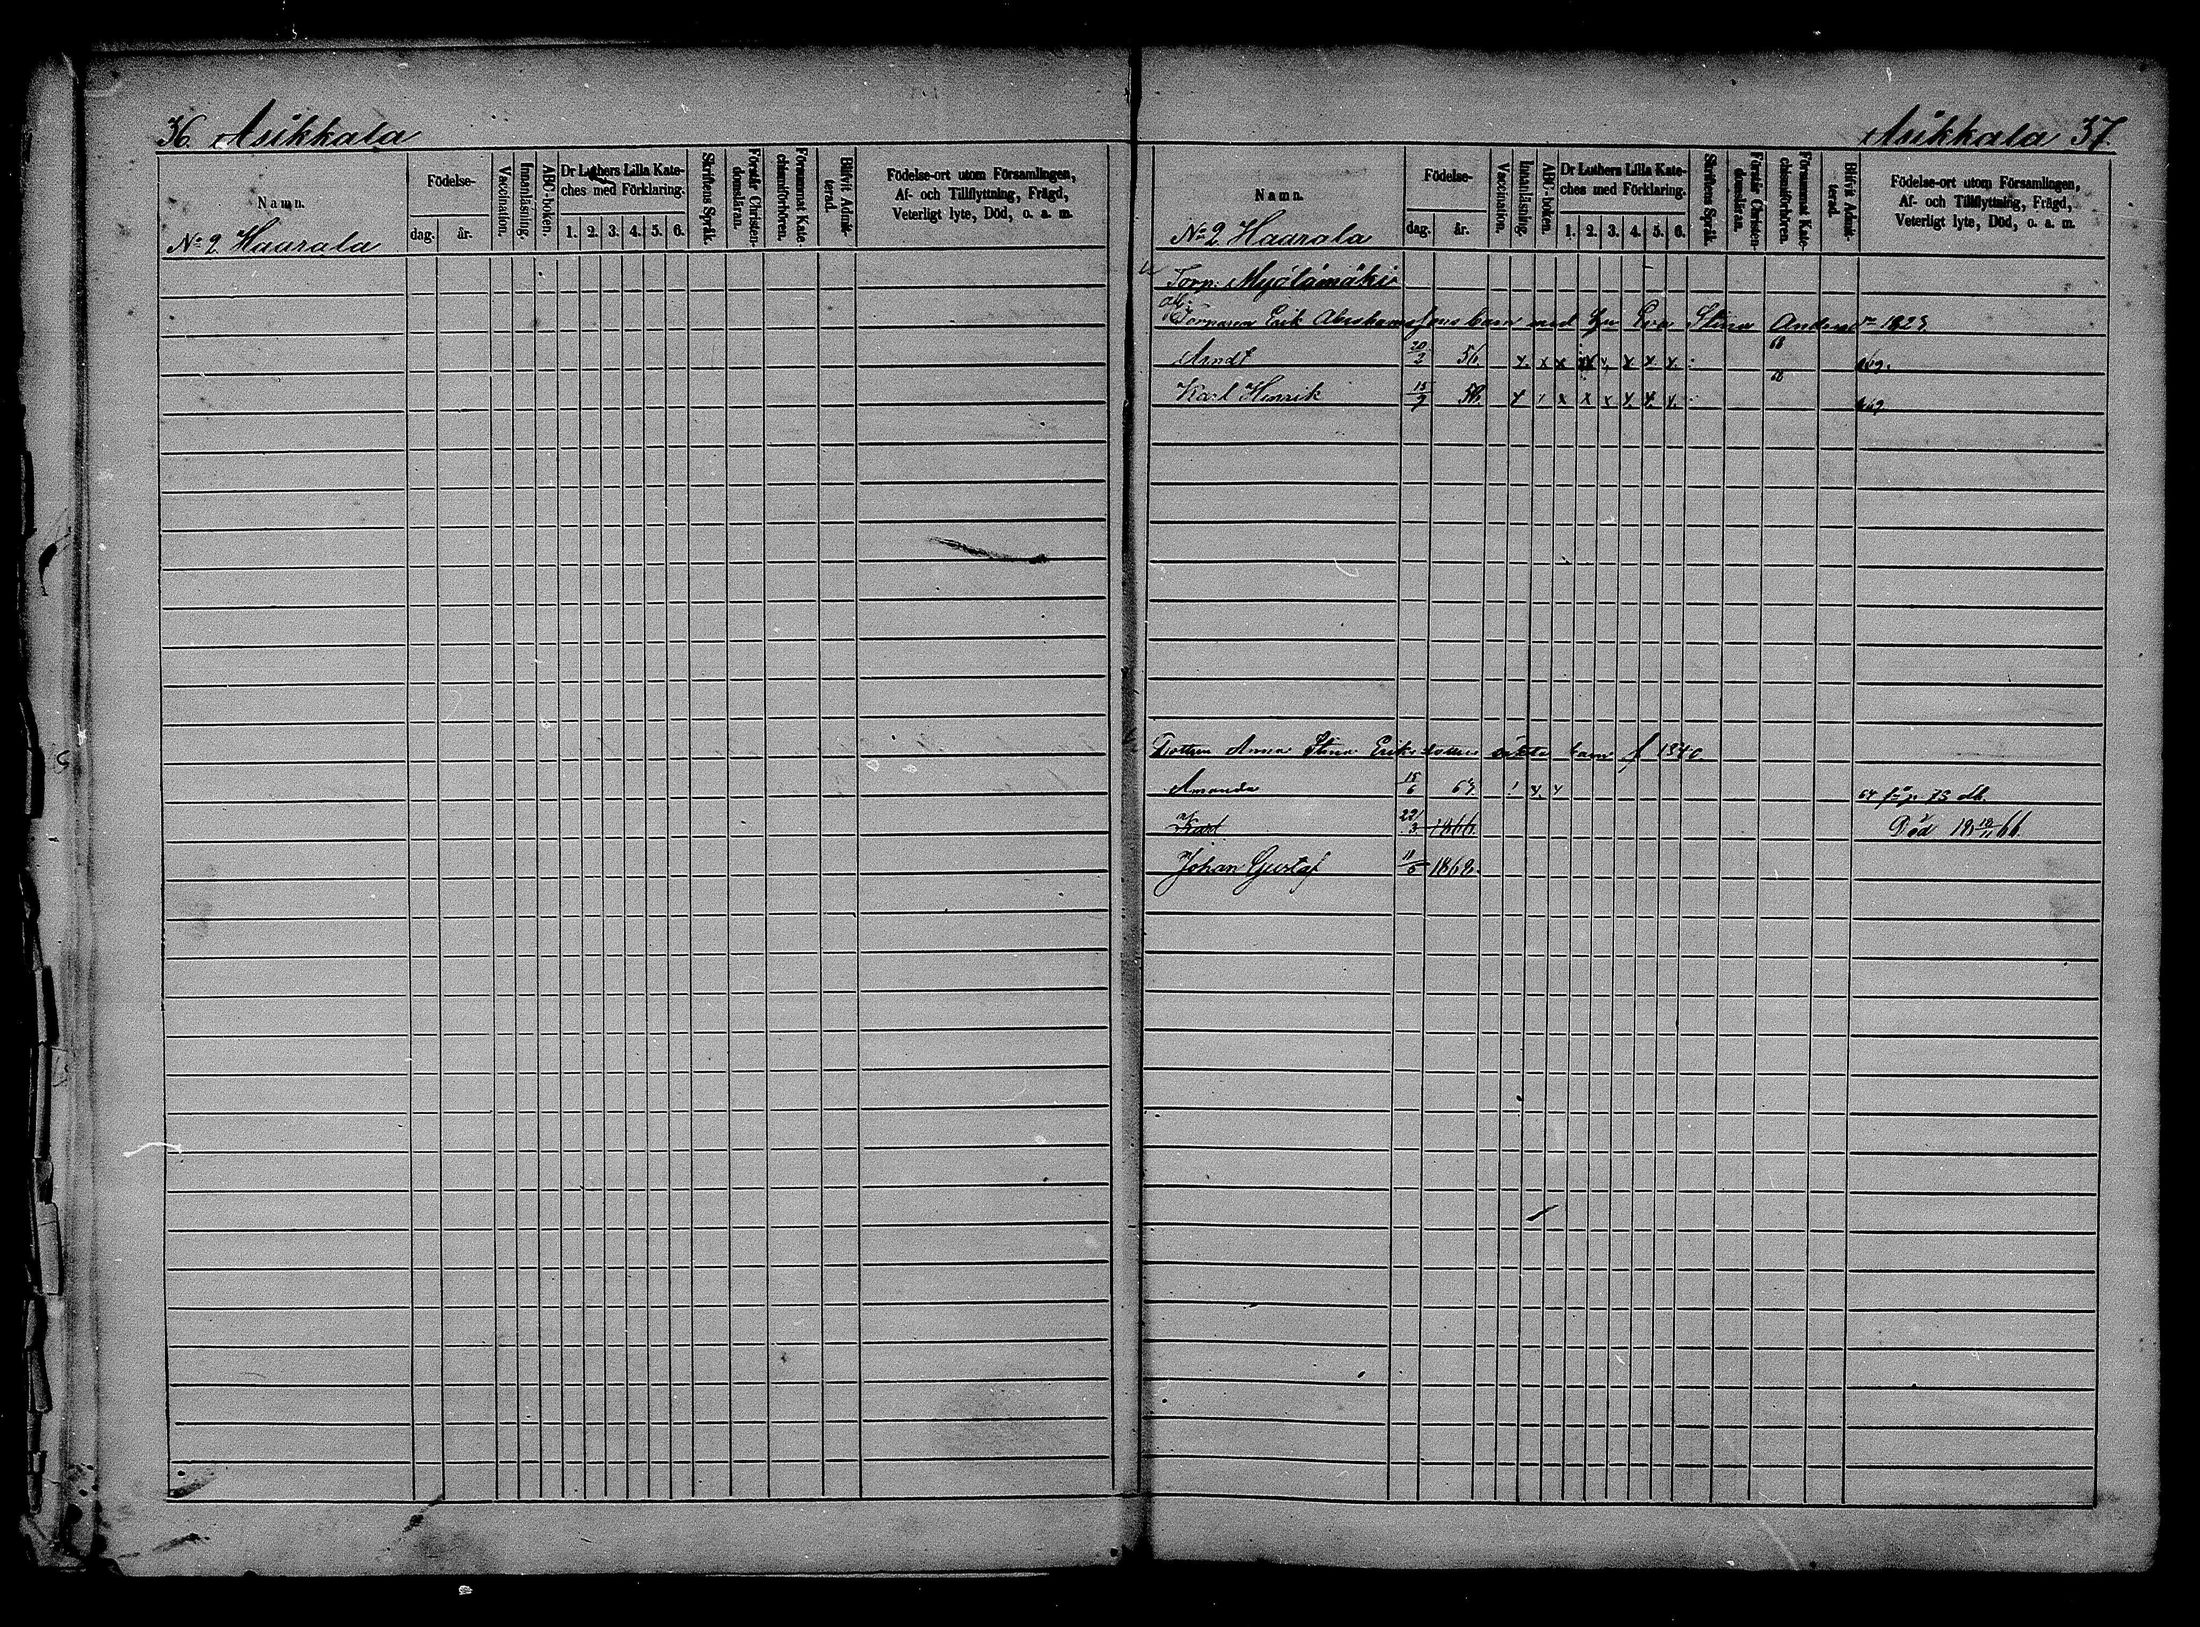 36. Asikkala
Namn.
Födelse-
dag. år.
Vaccination.
Innanläsning.
ABC-boken.
Dr Luthers Lilla Kate-
ches med Förklaring.
1. 2. 3. 4. 5. 6.
Skriftens Språk.
Förstår Christen-
domsläran.
Försummat Kate-
chismiförhören.
Blifvit Admit-
terad.
Födelse-ort utom Församlingen,
Af- och Tillflyttning, Frägd,
Veterligt lyte, Död, o. a. m.
No 2 Haarala
Asikkala 37.
Namn.
Födelse-
dag. år.
Vaccination.
Innanläsning.
ABC-boken.
Dr Luthers Lilla Kate-
ches med Förklaring.
1. 2. 3. 4. 5. 6.
Skriftens Språk.
Förstår Christen-
domsläran.
Försummat Kate-
chismiförhören.
Blifvit Admit-
terad.
Födelse-ort utom Församlingen,
Af- och Tillflyttning, Frägd,
Veterligt lyte, Död, o. a. m.
No 2 Haarala
Torp. Myötämäki
Torparen Erik Abrahamssons barn med Eva Stina
20/2 56. x x x x x x x 68
Karl Henrik 15/9 x x x x x x 68
Dottren Anna Stina Eriksdotters barn f 1840.
Amanda 15/6
Karl 22/3 1866 Död
Johan Gustaf 11/6 1868.